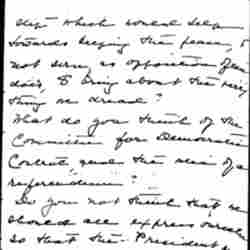 step which would help
towards keeping the peace, &
not serve as opposition often
does, to bring about the very
thing we dread?
What do you think of the
Committee for Democratic
Control and the idea of a
referendum?
Do you not think that we
should all express ourselves
so that the President,